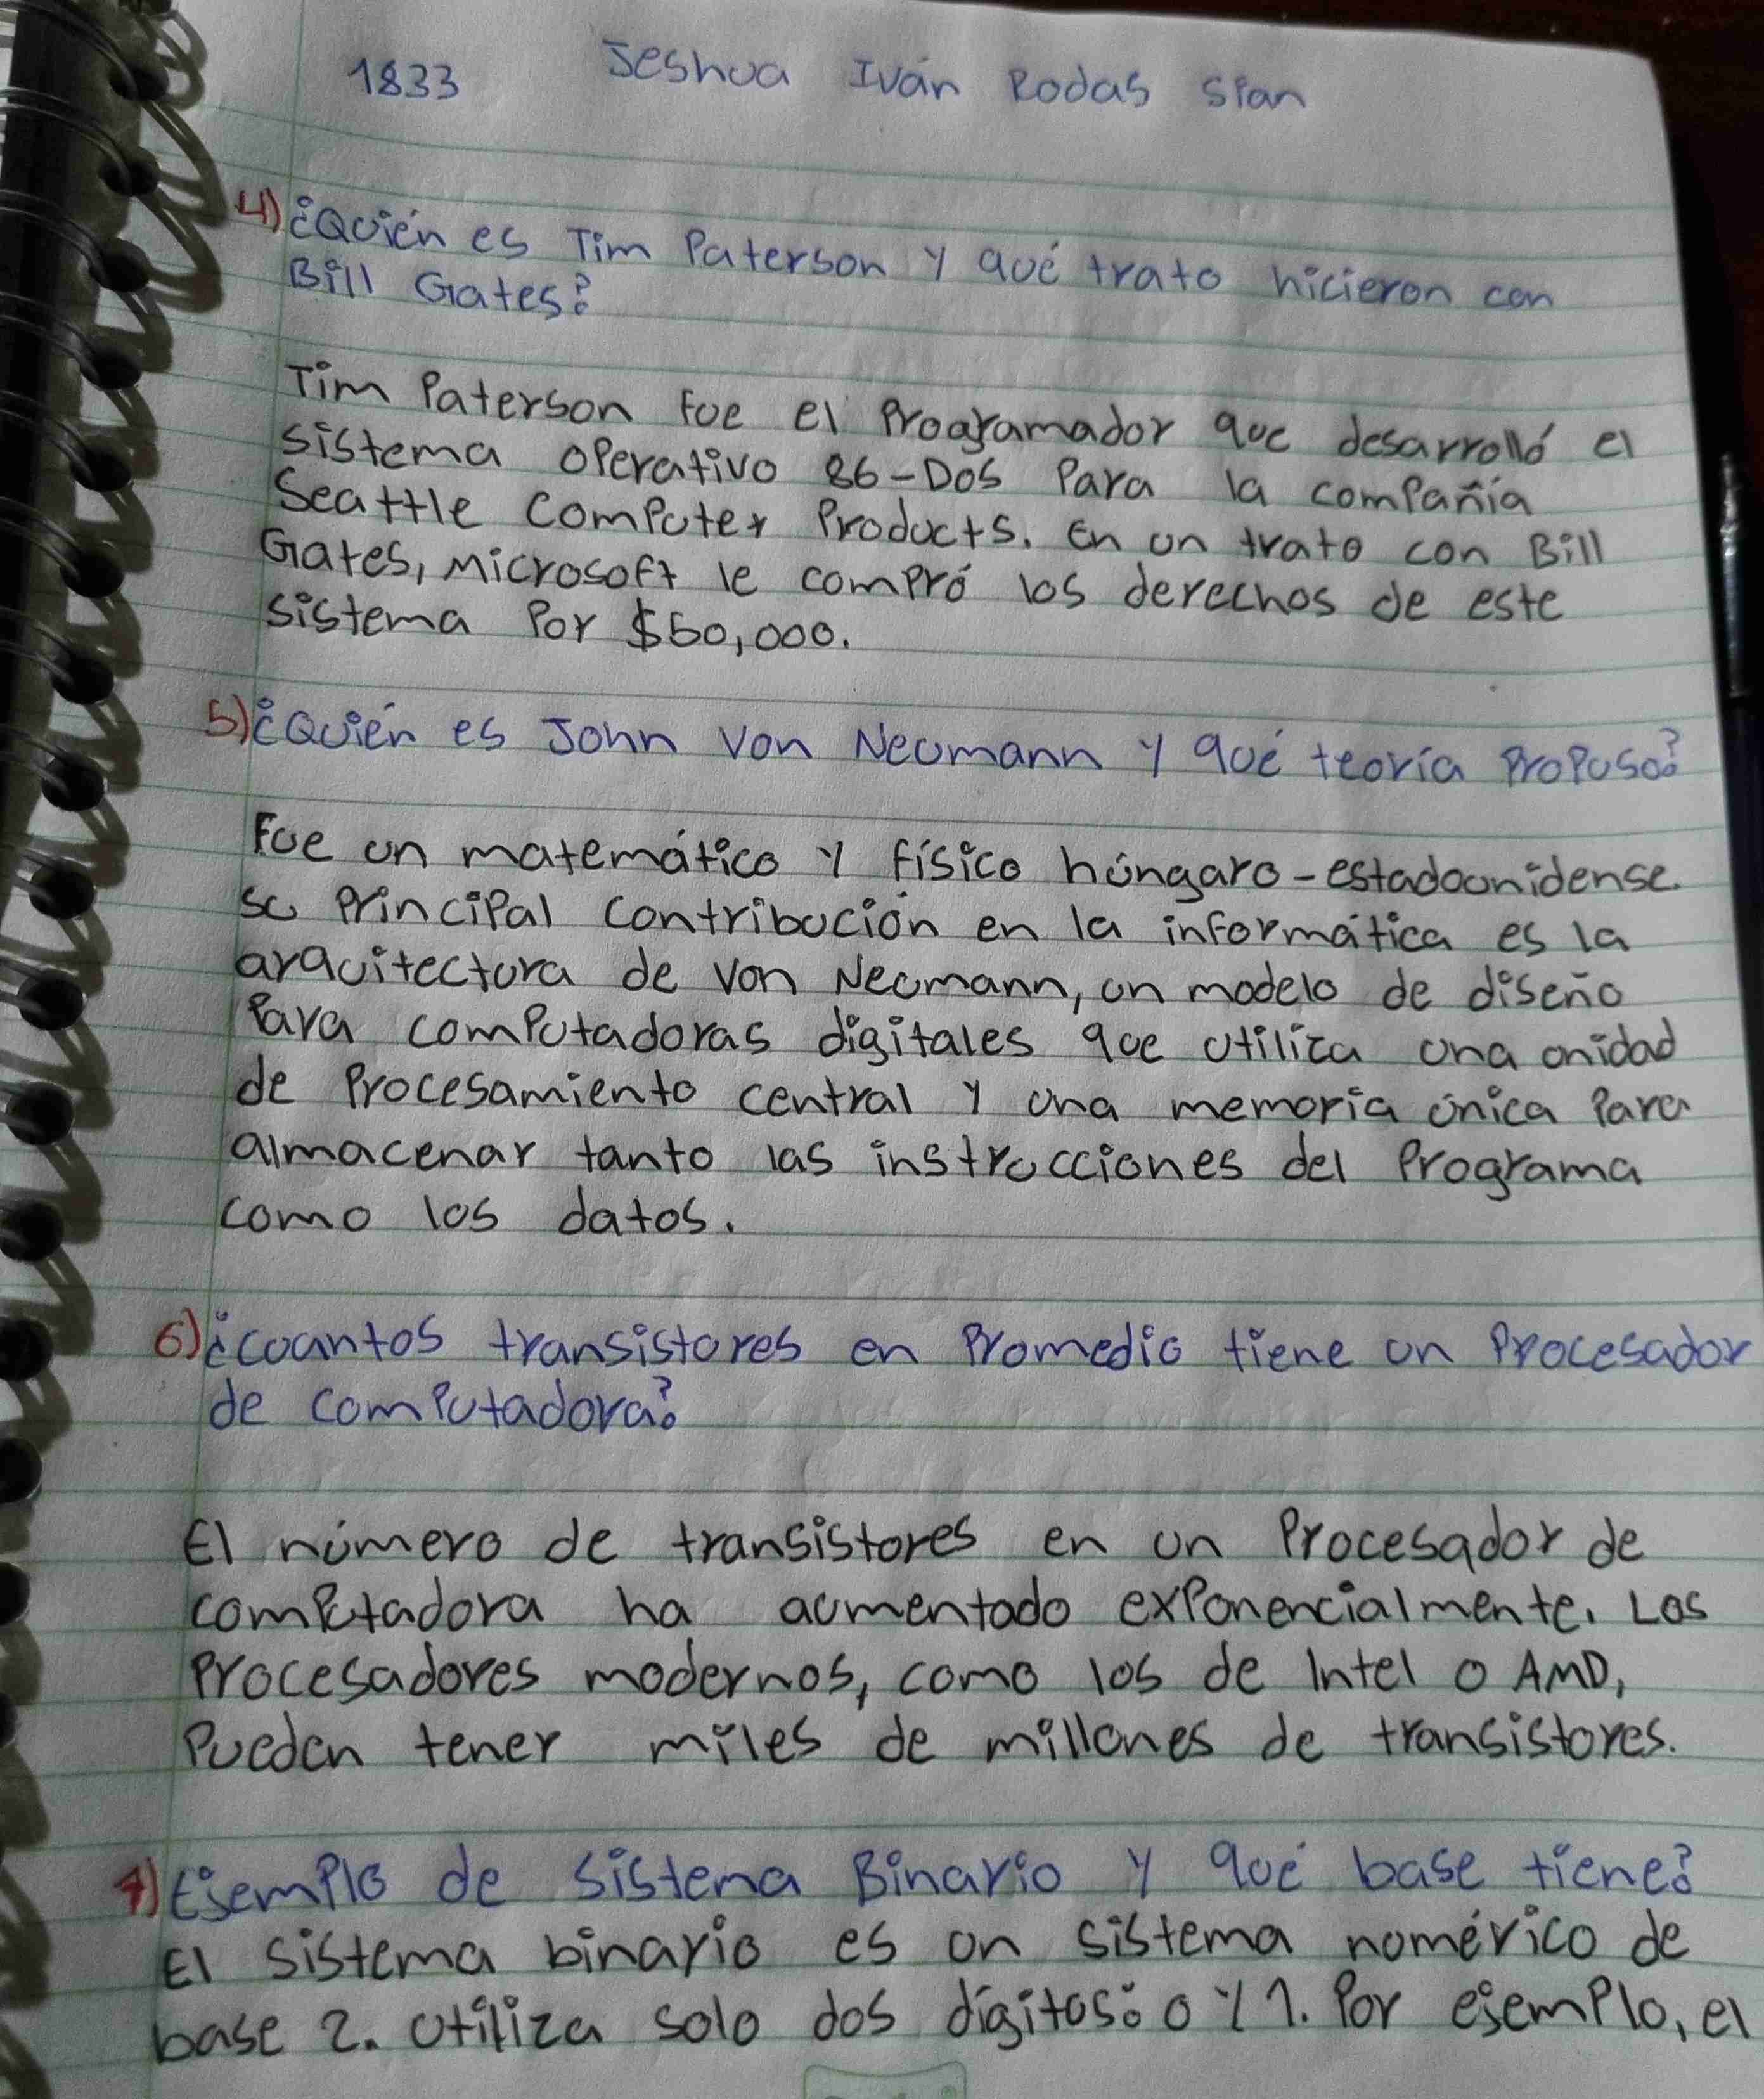 1833 Jeshua Iván Rodas Sian
4) ¿Quién es Tim Paterson y qué trato hicieron con
Bill Gates?
Tim Paterson fue el Programador que desarrolló el
sistema operativo 86-Dos Para la compañía
Seattle Computer Products. En un trato con Bill
Gates, Microsoft le compró los derechos de este
sistema Por $50,000.
5) ¿Quién es John Von Neumann y qué teoría Propuso?
Fue un matemático y físico húngaro-estadounidense.
su Principal contribución en la informática es la
arquitectura de Von Neumann, un modelo de diseño
Para computadoras digitales que utiliza una unidad
de Procesamiento central y una memoria única Para
almacenar tanto las instrucciones del Programa
como los datos.
6) ¿cuantos transistores en Promedio tiene un Procesador
de computadora?
El número de transistores en un Procesador de
computadora ha aumentado exponencialmente. Los
Procesadores modernos, como los de Intel o AMD,
Pueden tener miles de millones de transistores.
7) Ejemplo de Sistema Binario y qué base tiene?
El sistema binario es un sistema numérico de
base 2. utiliza solo dos dígitos: 0 y 1. Por ejemplo, el